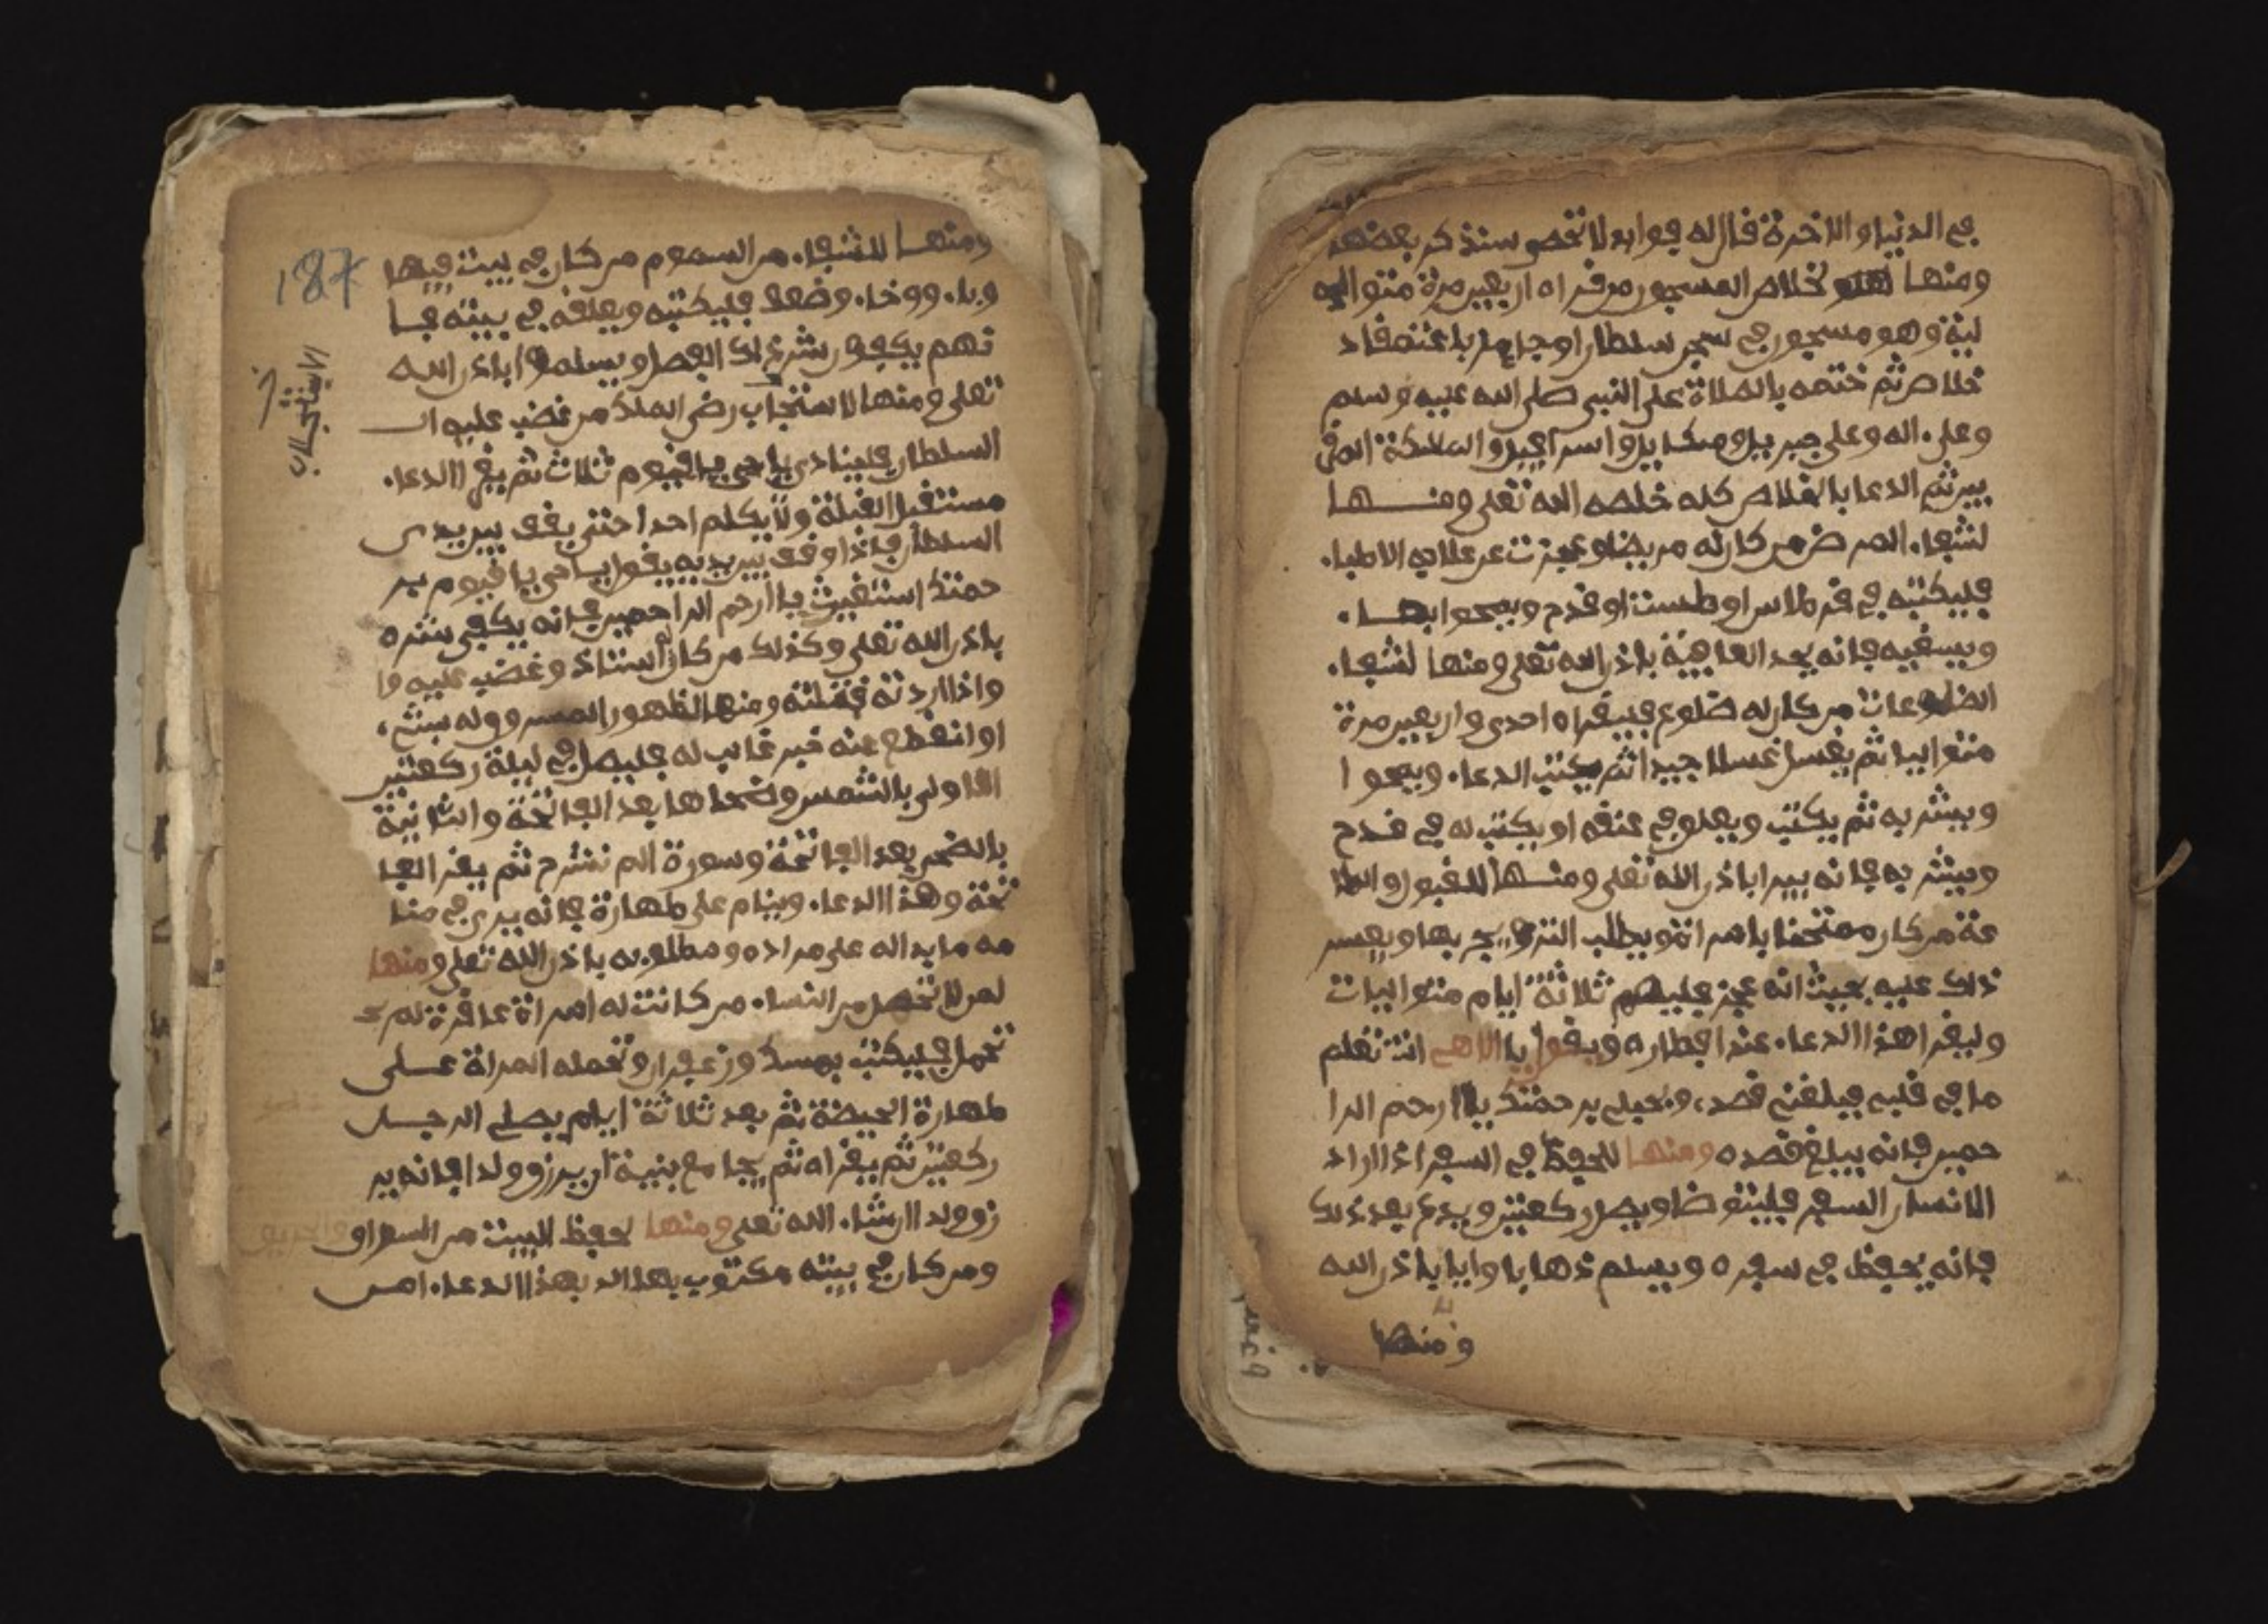 في الدنيا والاخرة فان له فوايد لا تحصى سنذكر بعضها
ومنها خلاص المسجون من قراه اربعين مرة متوالية
لية وهو مسجون في سجن سلطان او جاير باعتقاد
خلاص ثم ختمه بالصلاة على النبي صلى الله عليه وسلم
وعلى ءاله وعلى جبريل وميكاييل واسرافيل والملايكة المقر
بين ثم الدعا بالخلاص كله خلصه الله تعلى ومنها
لشفاء المرض من كان له مريضا وعجزت عن علاجه الاطباء
فليكتبه في قرطاس او طست او قدح ويمحوا بها
ويسقيه فانه يجد العافية باذن الله تعلى ومنها لشفاء
من كان له ضلوع فليقراه احدى واربعين مرة
متواليا ثم يغسل غسلا جيدا ثم يكتب الدعاء ويمحوا
ويشربه ثم يكتب ويعلق في عنقه او يكتب له في قدح
ويشربه فانه يبرا باذن الله تعلى ومنها للقبول والطا
عة من كان ممتحنا بامراة ويطلب التزويج بها ويعسر
ذلك عليه بحيث انه عجز فليصم ثلاثة ايام متواليات
وليقرا هذا الدعاء عند افطاره ويقول يا الاهي انت تعلم
ما في قلبي فبلغني قصدي برحمتك يا ارحم الرا
حمين فانه يبلغ قصده ومنها للحفظ في السفر اذا اراد
الانسان السفر فليتوضا ويصل ركعتين ويدع بعد ذلك
فانه يحفظ في سفره ويسلم ذهابا وايابا باذن الله
ومنها
187
ومنها للشفاء من السموم من كان في بيت فيها
وباء ووخا وضعف فليكتبه ويعلقه في بيته فا
نهم يكفون شر ذلك الفصل ويسلموا باذن الله
تعلى ومنها لاستجاب رضى الملك من غضب عليه ا
السلطان فلينادي يا حي يا قيوم ثلاث ثم يقرا الدعاء
مستقبل القبلة ولا يكلم احدا حتى يقف بين يدي
السلطان فاذا وقف بين يديه يقول يا حي يا قيوم بر
حمتك استغيث يا ارحم الراحمين فانه يكفي شره
باذن الله تعلى وكذلك من كان استاذ وغضب عليه وا
واذا اردته قبلته ومنها لظهور المسروق له شيء
او انقطع عنه خبر غايب له فليصل في ليلة ركعتين
الاولى بالشمس وضحاها بعد الفاتحة والثانية
بالضحى بعد الفاتحة وسورة الم نشرح ثم يقرا الفا
تحة وهذا الدعاء وينام على طهارة فانه يرى في منا
مه ما يداله على مراده ومطلوبه باذن الله تعلى ومنها
لمن لا تحمل من النساء من كانت له امراة عاقرة لم
تحمل فليكتب بمسك وزعفران وتحمله المراة على
طهارة الحيضة ثم بعد ثلاثة ايام يصلي الرجل
ركعتين ثم يقراه ثم يجامع بنية ان يرزق ولدا فانه ير
زق ولدا ان شاء الله تعلى ومنها لحفظ البيت من السراق
ومن كان في بيته مكتوب بهذا الدعاء امن